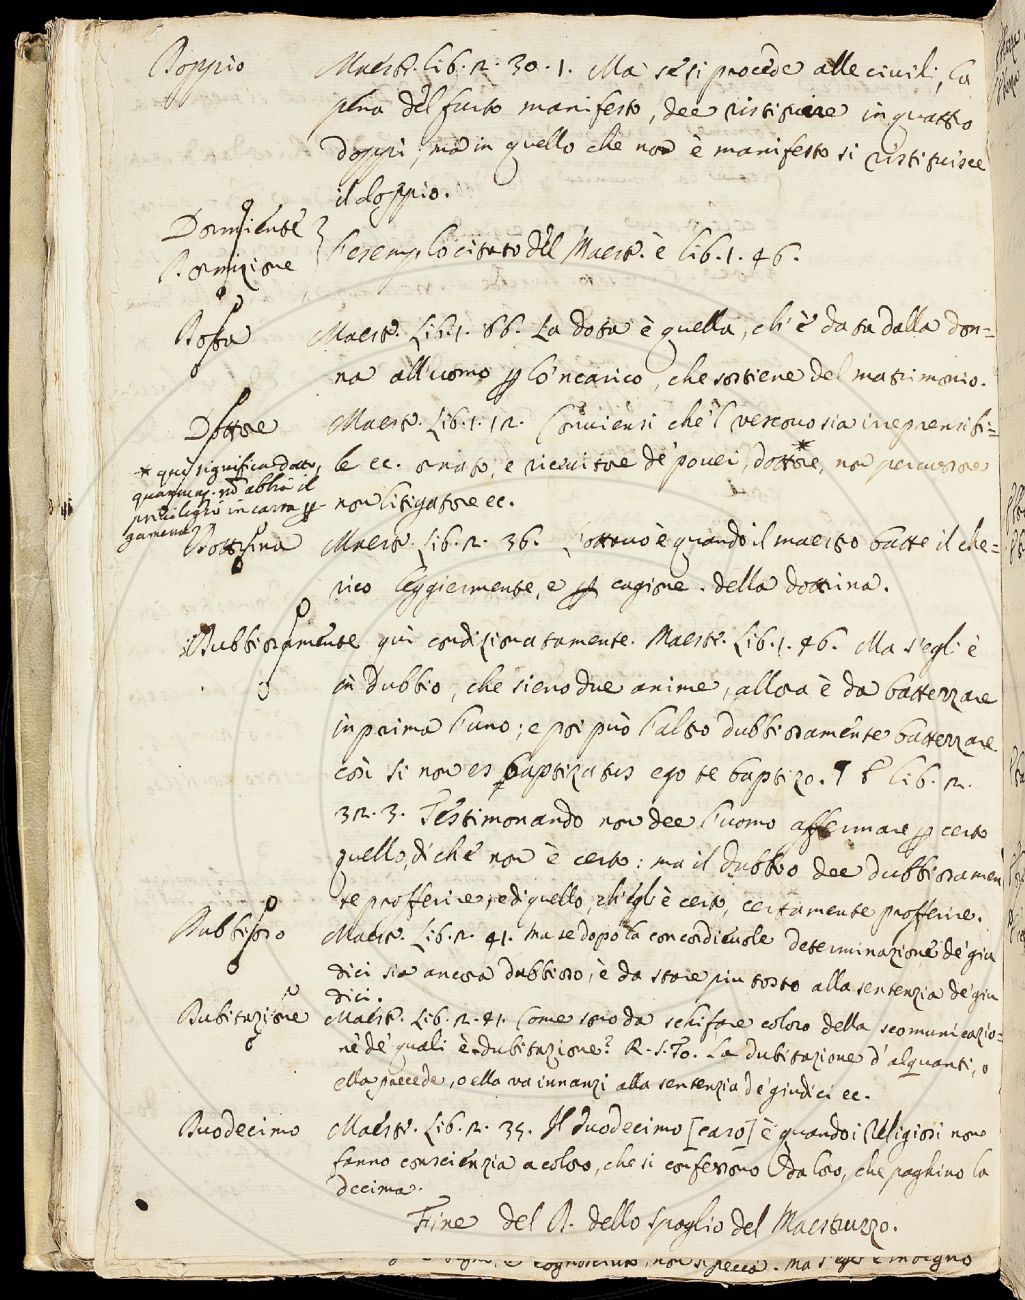 Doppio Maestr. Lib. 2. 30. 1. Ma se si procede alle civili, la
pena del furto manifesto, dee ristituire in quattro
doppi; ma in quello che non è manifesto si ristituisce
il doppio.
Dormiente
Dormizione
l'esemplo citato del Maestr. è lib. 1. 46.
Dota Maestr. Lib. 1. 66. La dota è quella, ch'è data dalla don=
na all'uomo p lo 'ncarico, che sostiene del matrimonio.
Dottore Maestr. Lib. 1. 12. Conviensi che 'l vescovo sia inreprensibi=
le ec. ornato, e ricevitore de' poveri, dottore*, non percussore
non litigatore ec.
* qui significa dotto,
quantunq. nō abbia il
privilegio in carta p
gamena
Dottrina Maestr. Lib. 2. 36. L'ottavo è quando il maestro batte il che=
rico leggiermente, e p cagione della dottrina.
Dubbiosamente qui condizionatamente. Maestr. Lib. 1. 46. Ma s'egli è
in dubbio, che sieno due anime, allora è da battezzare
in prima l'uno; e poi può l'altro dubbiosamente battezzare
così si non es baptizatus ego te baptizo. ¶ E lib. 2.
32. 3. Testimonando non dee l'uomo affermare p certo
quello, di che non è certo: ma il dubbio dee dubbiosamen
te profferire, e di quello, ch'egli è certo, certamente profferire.
Dubbioso Maestr. Lib. 2. 41. Ma se dopo la concordievole determinazione de' giu
dici sia ancora dubbioso, è da stare piu tosto alla sentenzia de' giu
dici.
Dubitazione Maestr. Lib. 2. 41. Come sono da schifare coloro della scomunicazio=
ne de' quali è dubitazione? R. S. To. La dubitazione d'alquanti, o
ella precede, o ella va innanzi alla sentenzia de' giudici ec.
Duodecimo Maestr. Lib. 2. 35. Il duodecimo [caso] è quando i Religiosi non
fanno conscienzia a coloro, che si confessono da loro, che paghino la
decima.
Fine del D. dello spoglio del Maestruzzo.